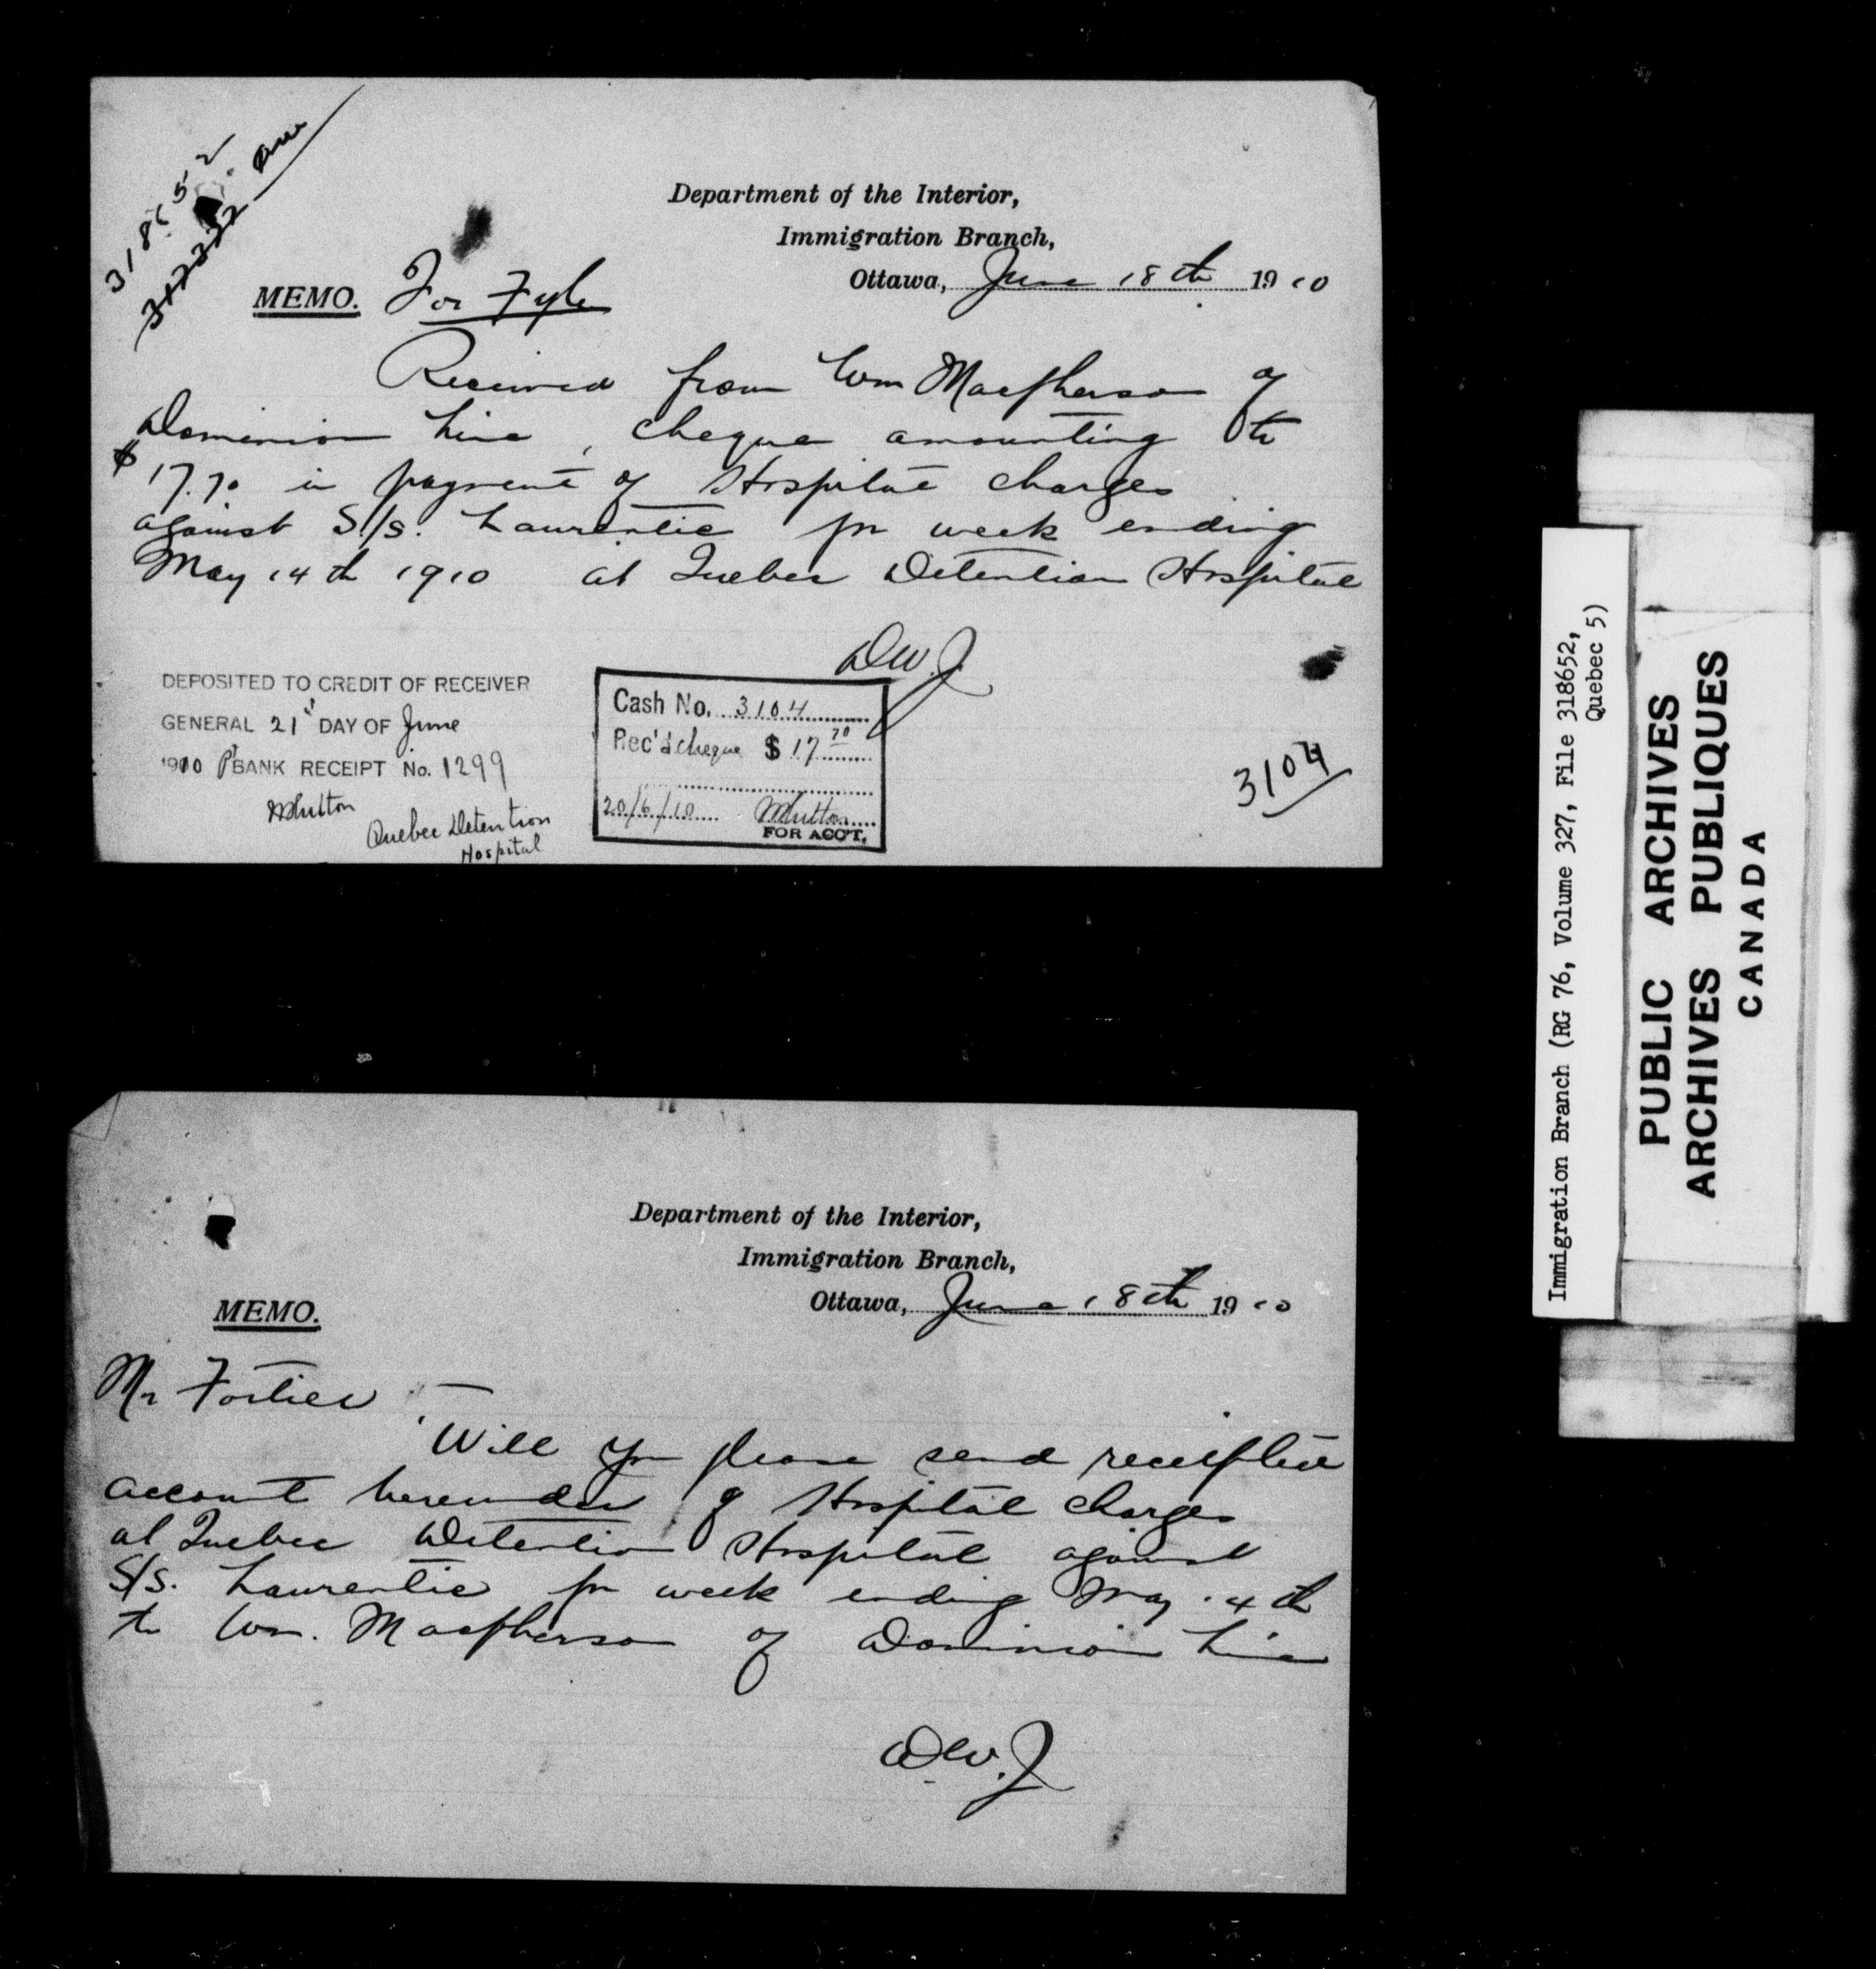 318652
Department of the Interior,
Immigration Branch,
Ottawa, June 18th 1910
MEMO. For Fyle
Received from Wm Macpherson of
Dominion Line, cheque amounting to
$17.70 in payment of Hospital charges
against S/s. Laurentic for week ending
May 14th 1910 at Quebec Detention Hospital
D.W.J.
DEPOSITED TO CREDIT OF RECEIVER
GENERAL 21st DAY OF June
1910 BANK RECEIPT No. 1299
Quebec Detention
Hospital
Cash No. 3104
Rec'd cheque $17.70
20/6/10
FOR ACC'T.
3104
Department of the Interior,
Immigration Branch,
Ottawa, June 18th 1910
MEMO.
Mr Fortier —
Will you please send receipted
account hereunder of Hospital charges
at Quebec Detention Hospital against
S/S. Laurentic for week ending May 14th
to Wm. Macpherson of Dominion Line
D.W.J.
Immigration Branch (RG 76, Volume 327, File 318652,
Quebec 5)
PUBLIC ARCHIVES
ARCHIVES PUBLIQUES
CANADA